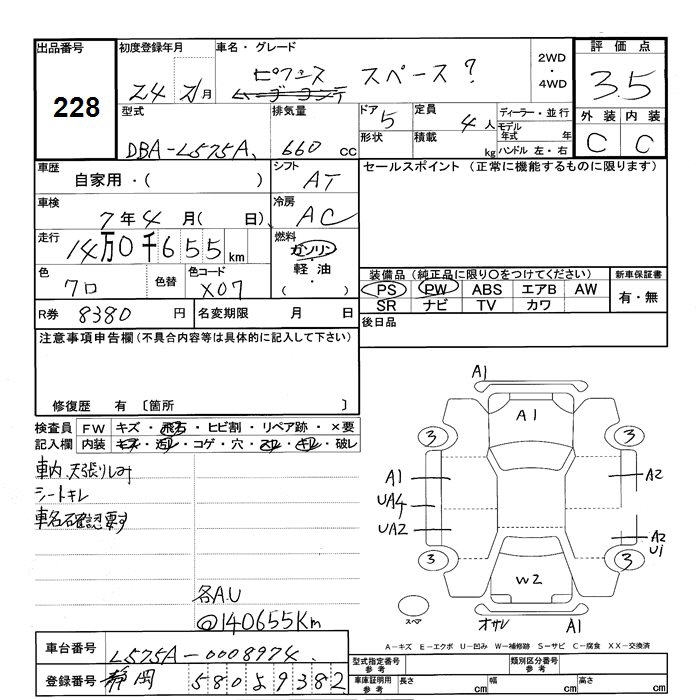 出品番号
228
初度登録年月
24 月
車名・グレード
スペース?
2WD
・
4WD
評価点
3.5
外装 内装
C C
型式
DBA-L575A
排気量
660 cc
ドア 5
形状
定員 4 人
積載 kg
ディーラー・並行
モデル年式 年
ハンドル 左・右
車歴
自家用・( )
シフト AT
セールスポイント (正常に機能するものに限ります)
車検
7年4月( 日)
冷房 AC
走行
14万0千655 km
燃料
ガソリン
・
軽油
( )
色
クロ
色替
色コード
X07
装備品 (純正品に限り○をつけてください)
PS PW ABS エアB AW
SR ナビ TV カワ
新車保証書
有・無
R券 8380 円
名変期限 月 日
後日品
注意事項申告欄 (不具合内容等は具体的に記入して下さい)
修復歴 有 〔箇所 〕
検査員記入欄
FW キズ・飛石・ヒビ割・リペア跡・×要
内装 キズ・汚レ・コゲ・穴・スレ・キレ・破レ
車内、天張りしみ
シートキレ
車名確認要す
各A.U
@140655Km
A1
A1
3 3
A1 A2
UA4
UA2 A2
U1
3 3
W2
スペア オサレ A1
A-キズ E-エクボ U-凹み W-補修跡 S-サビ C-腐食 XX-交換済
車台番号 L575A-0008974
登録番号 静岡 580 ら9382
型式指定番号 参考
類別区分番号 参考
車庫証明用 参考
長さ cm 幅 cm 高さ cm